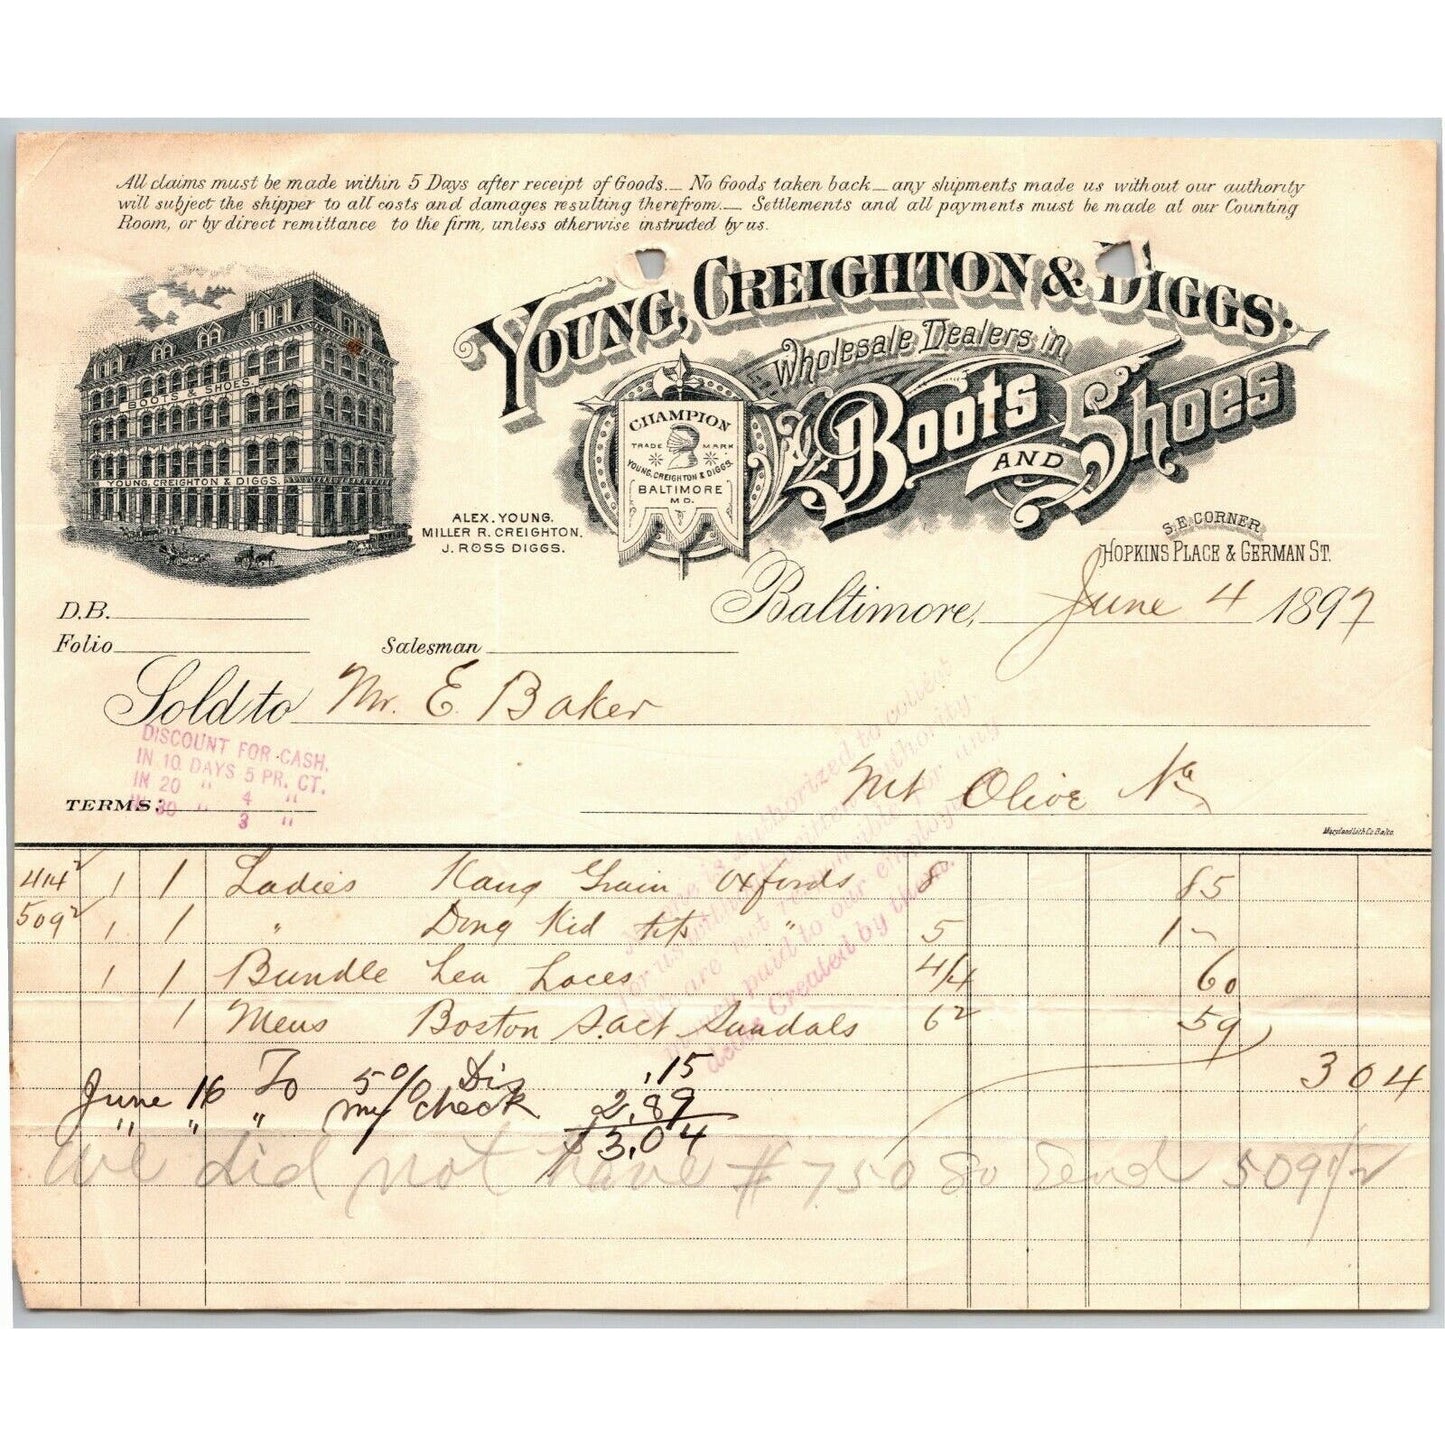 All claims must be made within 5 Days after receipt of Goods.— No Goods taken back— any shipments made us without our authority
will subject the shipper to all costs and damages resulting therefrom.— Settlements and all payments must be made at our Counting
Room, or by direct remittance to the firm, unless otherwise instructed by us.
YOUNG, CREIGHTON & DIGGS.
Wholesale Dealers in
Boots AND Shoes
BOOTS & SHOES.
YOUNG, CREIGHTON & DIGGS.
CHAMPION
TRADE MARK
YOUNG, CREIGHTON & DIGGS.
BALTIMORE
MD.
ALEX. YOUNG.
MILLER R. CREIGHTON.
J. ROSS DIGGS.
S.E. CORNER
HOPKINS PLACE & GERMAN ST.
Baltimore, June 4 1897
D.B.
Folio Salesman
Sold to Mr. E. Baker
DISCOUNT FOR CASH.
IN 10 DAYS 5 PR. CT.
IN 20 " 4 "
IN 30 " 3 "
Mt Olive Va
TERMS:
Maryland Lith Co. Balto.
414² 1 1 Ladies Kang Grain Oxfords 8 85
509² 1 1 " Dong Kid " 5 1 –
1 1 Bundle Lea Laces 4/4 60
1 Mens Boston Sandals 6² 59
3 04
June 16 To 5% Dis .15
" " " my check 2.89
$3.04
We did not have # 750 So Send 509 1/2